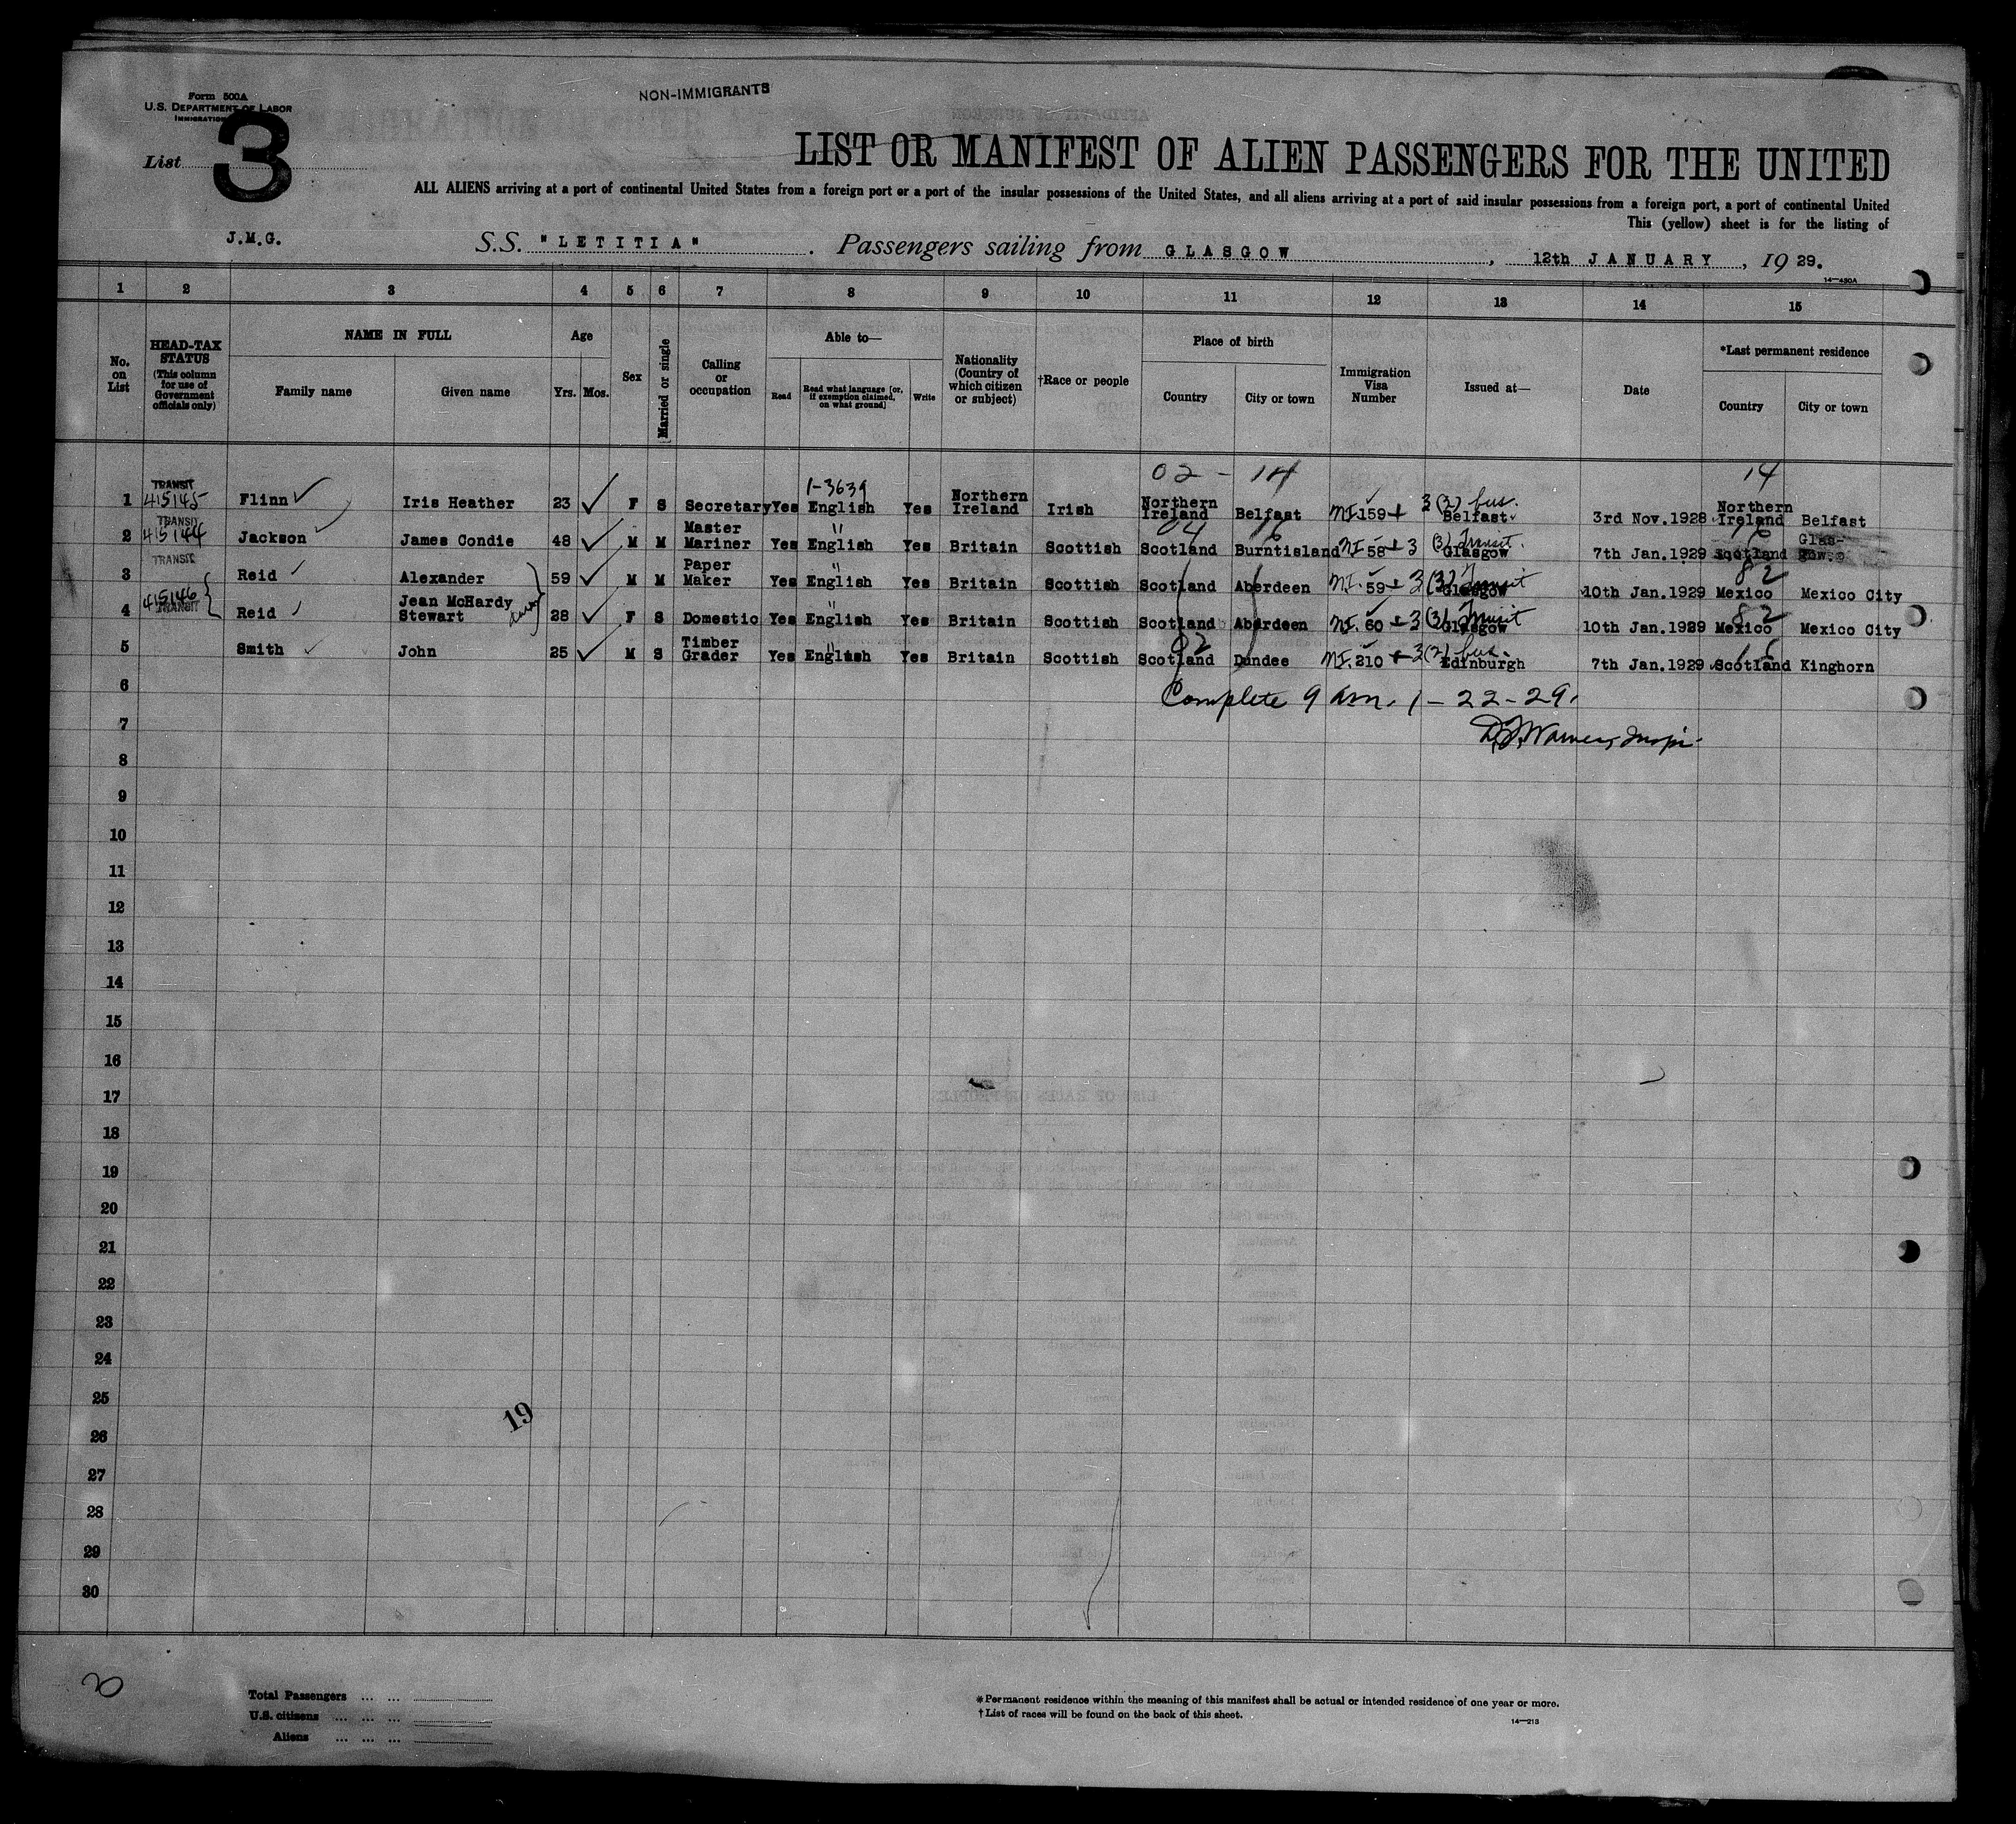 Form 500A
U.S. DEPARTMENT OF LABOR
IMMIGRATION
NON-IMMIGRANTS
List 3
LIST OR MANIFEST OF ALIEN PASSENGERS FOR THE UNITED
ALL ALIENS arriving at a port of continental United States from a foreign port or a port of the insular possessions of the United States, and all aliens arriving at a port of said insular possessions from a foreign port, a port of continental United
This (yellow) sheet is for the listing of
J.M.G.
S.S. "LETITIA". Passengers sailing from GLASGOW, 12th JANUARY, 19 29.
14—430A
1 2 3 4 5 6 7 8 9 10 11 12 13 14 15
No. on List
HEAD-TAX STATUS (This column for use of Government officials only)
NAME IN FULL
Family name Given name
Age
Yrs. Mos.
Sex
Married or single
Calling or occupation
Able to—
Read Read what language [or, if exemption claimed, on what ground] Write
Nationality (Country of which citizen or subject)
†Race or people
Place of birth
Country City or town
Immigration Visa Number
Issued at—
Date
*Last permanent residence
Country City or town
02 - 14 14
1 TRANSIT 415145 Flinn Iris Heather 23 F S Secretary Yes 1-3639 English Yes Northern Ireland Irish Northern Ireland Belfast NI 159 3 (2) bus. Belfast 3rd Nov.1928 Northern Ireland Belfast
2 TRANSIT 415144 Jackson James Condie 48 M M Master Mariner Yes English Yes Britain Scottish 04 Scotland 16 Burntisland NI 58 3 (3) Transit. Glasgow 7th Jan.1929 16 Scotland Glasgow.
3 TRANSIT Reid Alexander 59 M M Paper Maker Yes English Yes Britain Scottish Scotland Aberdeen NI. 59 3 (3) Transit Glasgow 10th Jan.1929 82 Mexico Mexico City
4 415146 TRANSIT Reid Jean McHardy Stewart 28 F S Domestic Yes English Yes Britain Scottish Scotland Aberdeen NI. 60 3 (3) Transit Glasgow 10th Jan.1929 82 Mexico Mexico City
5 Smith John 25 M S Timber Grader Yes English Yes Britain Scottish Scotland Dundee NI. 210 3 (2) bus. Edinburgh 7th Jan.1929 Scotland Kinghorn
6 Complete 9 am. 1-22-29.
7
8
9
10
11
12
13
14
15
16
17
18
19
20
21
22
23
24
25
19
26
27
28
29
30
20
Total Passengers ... ...
U.S. citizens ... ... ...
Aliens ... ... ...
*Permanent residence within the meaning of this manifest shall be actual or intended residence of one year or more.
†List of races will be found on the back of this sheet.
14—213